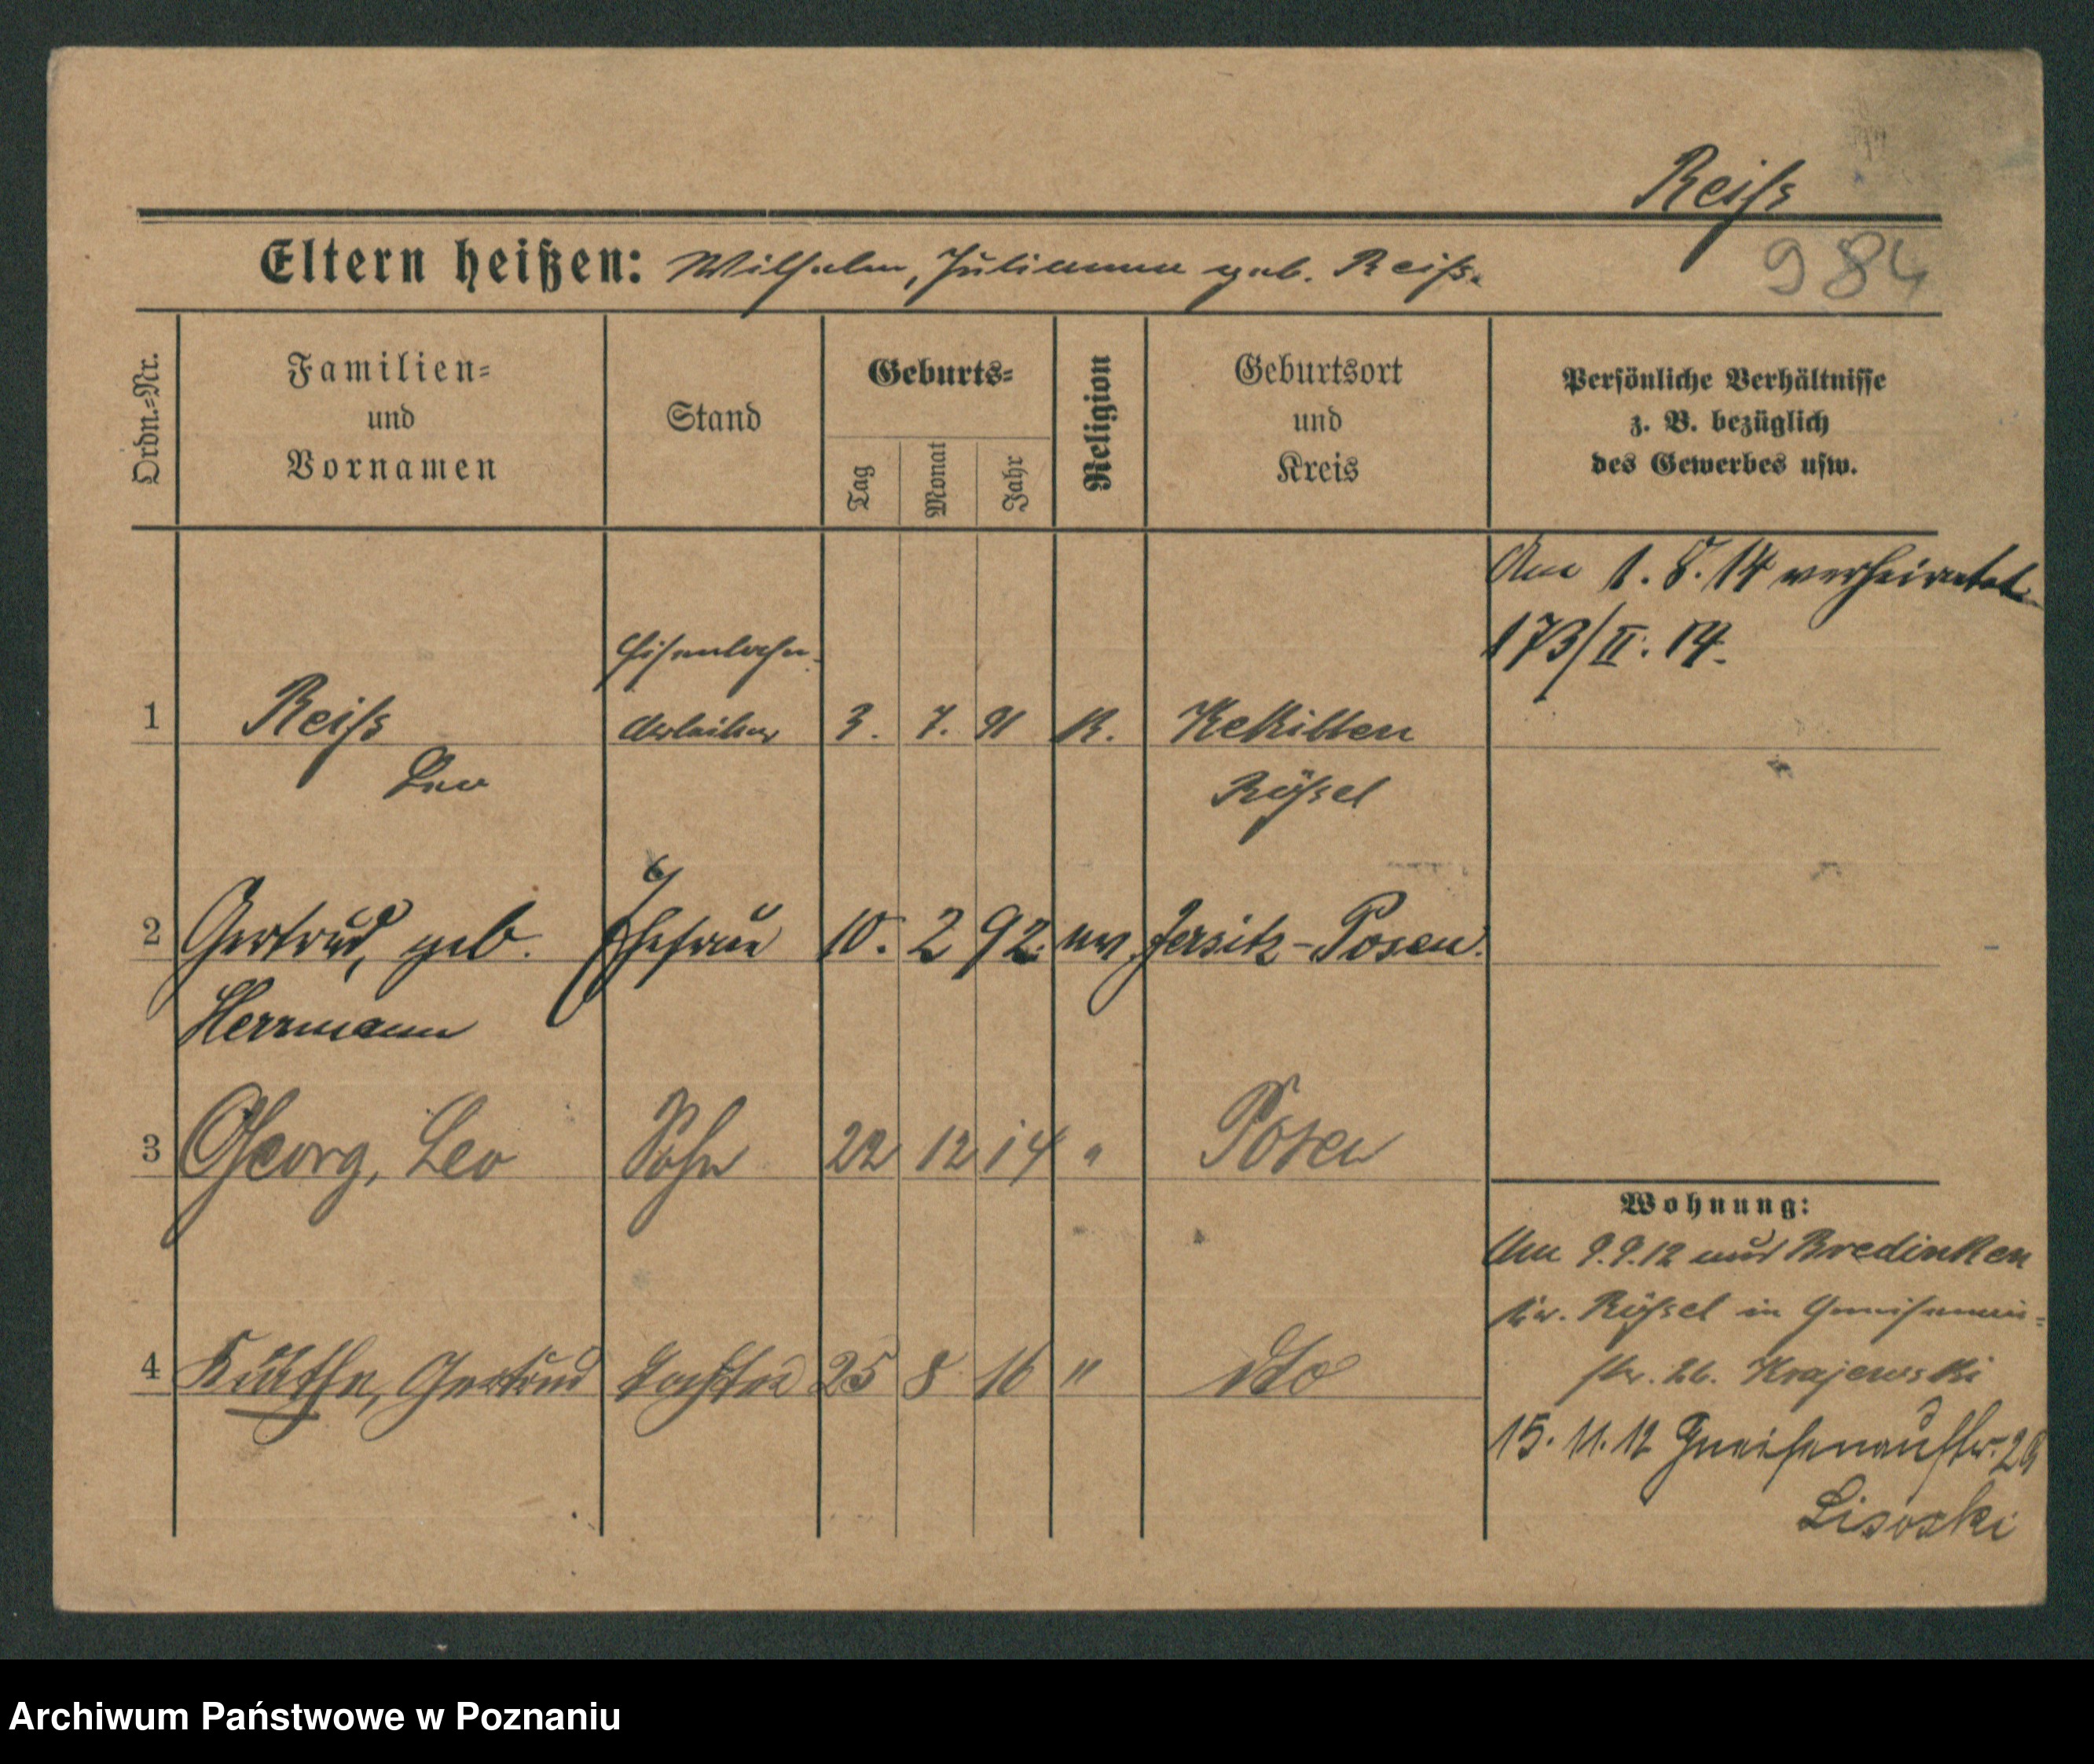 Reiſs
984
Eltern heißen: Wilhelm, Julianna geb. Reiſs.
Ordn.=Nr.
Familien=
und
Vornamen
Stand
Geburts=
Tag
Monat
Jahr
Religion
Geburtsort
und
Kreis
Perſönliche Verhältniſſe
z. B. bezüglich
des Gewerbes uſw.
Am 1.8.14 verheiratet
173/II. 14.
Eisenbahn-
1 Reiſs Arbeiter 3. 7. 91 K. Kekitten
Leo Röſsel
2 Gertrud, geb. Ehefrau 10. 2 92. Jersitz-Posen.
Herrmann
3 Georg, Leo Sohn 22 12 14 " Posen
4 Käthe, Gertrud Tochter 25 8 16 " dto
Wohnung:
Am 9.9.12 aus Bredinken
Kr. Röſsel in Gneisenau=
str. 26. Krajewski
15.11.12 Gneisenaustr. 29
Lisoski
Archiwum Państwowe w Poznaniu